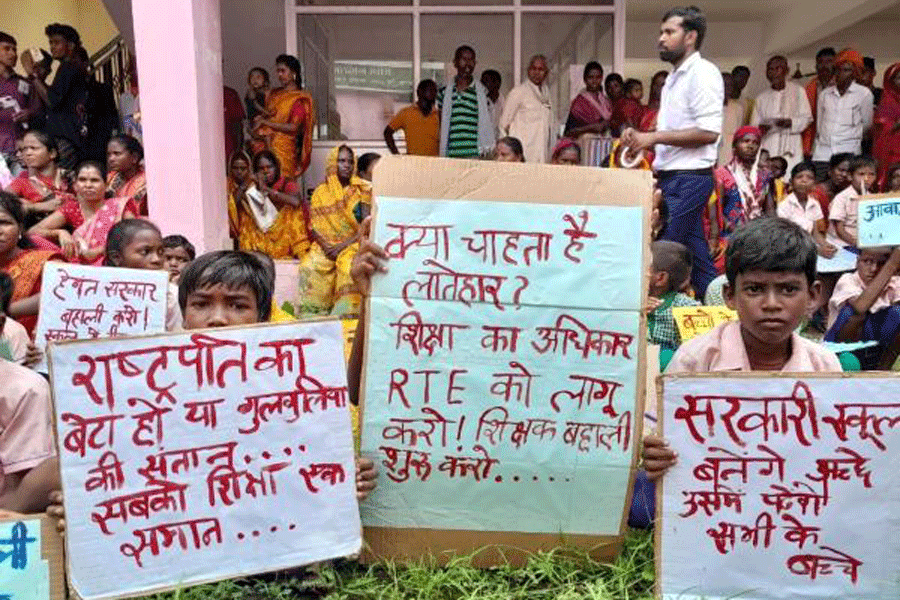 हेमंत सरकार
बहाली करो!
राष्ट्रपति का
बेटा हो या गुलबुलिया
की संतान....
सबको शिक्षा एक
समान ....
क्या चाहता है
लातेहार?
शिक्षा का अधिकार
RTE को लागू
करो! शिक्षक बहाली
शुरू करो.....
सरकारी स्कूल
बनेंगे अच्छे
उसमें पढ़ेंगे
सभी के
बच्चे